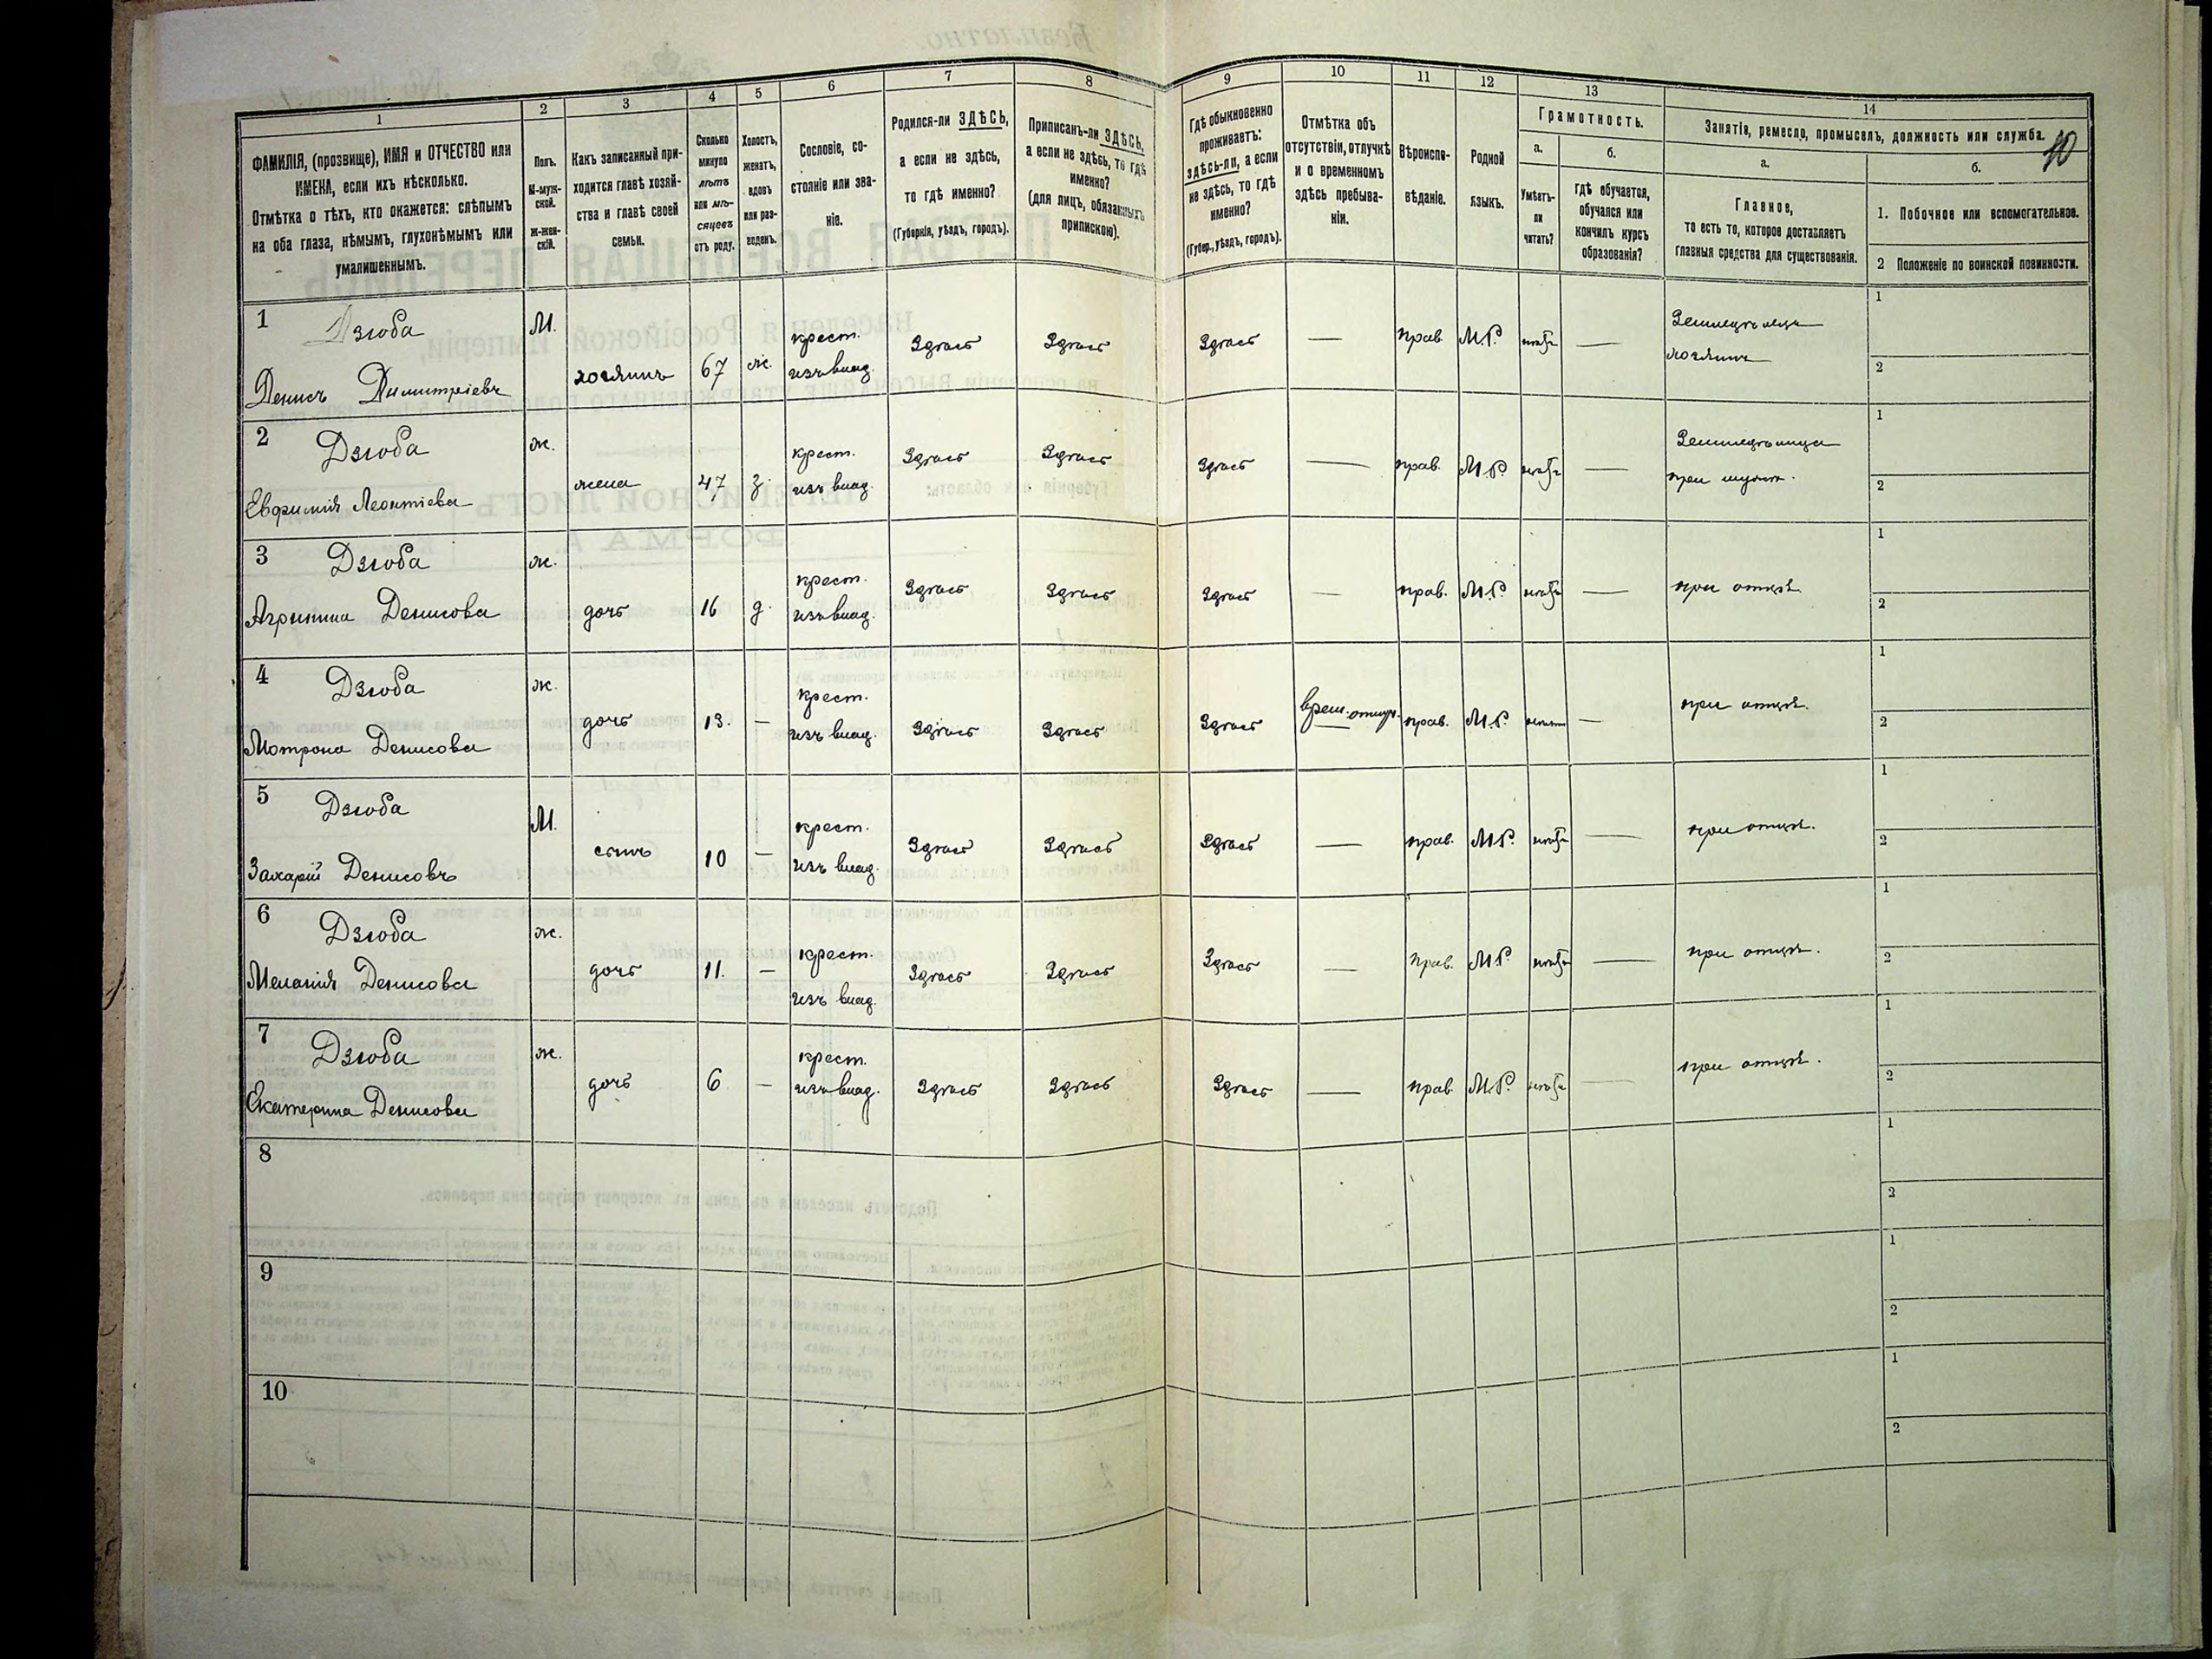 1
2
3
4
5
6
7
8
9
10
11
12
13
14
ФАМИЛІЯ, (прозвище), ИМЯ и ОТЧЕСТВО или
ИМЕНА, если ихъ нѣсколько.
Отмѣтка о тѣхъ, кто окажется: слѣпымъ
на оба глаза, нѣмымъ, глухонѣмымъ или
умалишеннымъ.
Полъ.
М-муж-
ской.
Ж-жен-
скій.
Какъ записанный при-
ходится главѣ хозяй-
ства и главѣ своей
семьи.
Сколько
минуло
лѣтъ
или мѣ-
сяцевъ
отъ роду.
Холостъ,
женатъ,
вдовъ
или раз-
веденъ.
Сословіе, со-
стояніе или зва-
ніе.
Родился-ли ЗДѢСЬ,
а если не здѣсь,
то гдѣ именно?
(Губернія, уѣздъ, городъ).
Приписанъ-ли ЗДѢСЬ,
а если не здѣсь, то гдѣ
именно?
(для лицъ, обязанныхъ
припискою).
Гдѣ обыкновенно
проживаетъ:
здѣсь-ли, а если
не здѣсь, то гдѣ
именно?
(Губер., уѣздъ, городъ).
Отмѣтка объ
отсутствіи, отлучкѣ
и о временномъ
здѣсь пребыва-
ніи.
Вѣроиспо-
вѣданіе.
Родной
языкъ.
Грамотность.
а.
Умѣетъ-
ли
читать?
б.
гдѣ обучается,
обучался или
кончилъ курсъ
образованія?
Занятія, ремесло, промыселъ, должность или служба.
10
а.
Главное,
то есть то, которое доставляетъ
главныя средства для существованія.
б.
1. Побочное или вспомогательное.
2 Положеніе по воинской повинности.
1 Дзюба М. крест. Здѣсь Здѣсь Здѣсь — прав. М.Р. нѣтъ — Земледѣлецъ 1
Денисъ Димитріевъ хозяинъ 67 ж. изъ влад. хозяинъ 2
2 Дзюба ж. крест. Здѣсь Здѣсь Здѣсь — прав. М.Р. нѣтъ — 1
Евфимія Леонтіева жена 47 з. изъ влад. при мужѣ. 2
3 Дзюба ж. крест. Здѣсь Здѣсь Здѣсь — прав. М.Р. нѣтъ — при отцѣ 1
Агрипина Денисова дочь 16 д. изъ влад. 2
4 Дзюба ж. крест. Здѣсь Здѣсь Здѣсь прав. М.Р. — при отцѣ. 1
Мотрона Денисова дочь 13. — изъ влад. 2
5 Дзюба М. крест. Здѣсь Здѣсь Здѣсь — прав. М.Р. нѣтъ — при отцѣ. 1
Захарій Денисовъ сынъ 10 — изъ влад. 2
6 Дзюба ж. крест. Здѣсь Здѣсь Здѣсь — прав. М.Р. нѣтъ — при отцѣ. 1
Меланія Денисова дочь 11. — изъ влад. 2
7 Дзюба ж. крест. Здѣсь Здѣсь Здѣсь — прав. М.Р. нѣтъ — при отцѣ. 1
Екатерина Денисова дочь 6 — изъ влад. 2
8 1
2
9 1
2
10 1
2